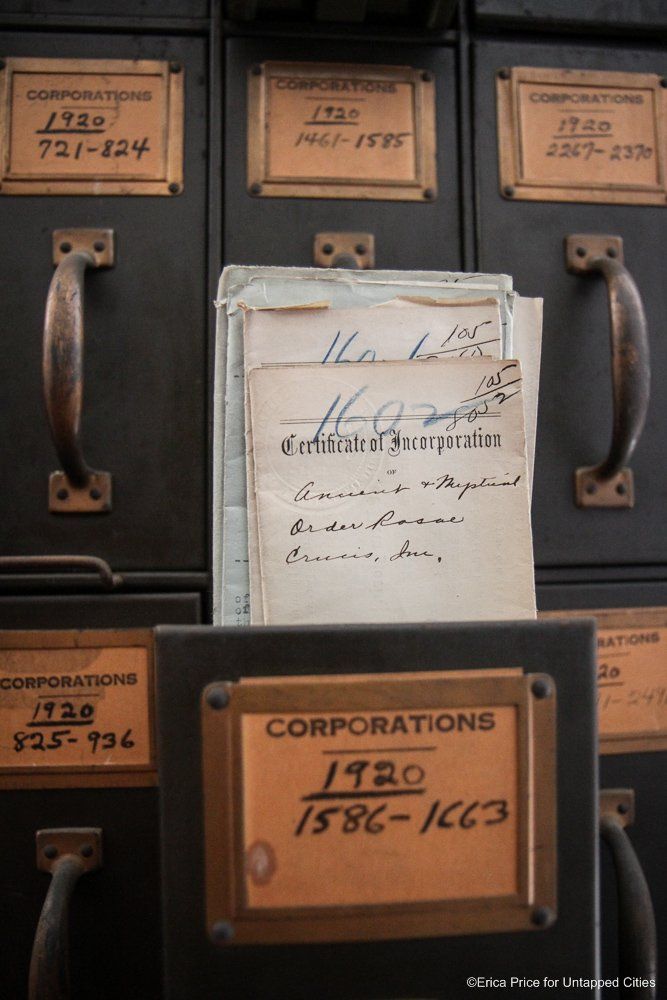 CORPORATIONS
1920
721-824
CORPORATIONS
1920
1461-1585
CORPORATIONS
1920
2267-2370
105
160
105
8052
1602
Certificate of Incorporation
OF
Ancient & Mystical
Order Rosae
Crucis, Inc.
CORPORATIONS
1920
825-936
RATIONS
20
CORPORATIONS
1920
1586-1663
©Erica Price for Untapped Cities